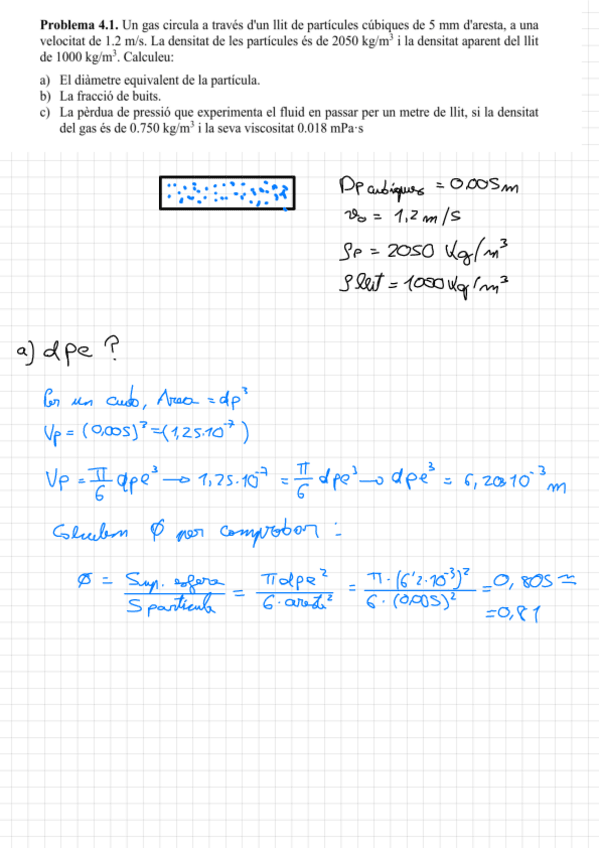 Problema 4.1. Un gas circula a través d'un llit de partícules cúbiques de 5 mm d'aresta, a una
velocitat de 1.2 m/s. La densitat de les partícules és de 2050 kg/m³ i la densitat aparent del llit
de 1000 kg/m³. Calculeu:
a) El diàmetre equivalent de la partícula.
b) La fracció de buits.
c) La pèrdua de pressió que experimenta el fluid en passar per un metre de llit, si la densitat
del gas és de 0.750 kg/m³ i la seva viscositat 0.018 mPa·s
Dp cubiques = 0,005 m
v₀ = 1,2 m/s
ρp = 2050 Kg/m³
ρllit = 1000 Kg/m³
a) dpe ?
Per un cubo, Area = dp³
Vp = (0,005)³ = (1,25·10⁻⁷)
Vp = π/6 dpe³ → 1,25·10⁻⁷ = π/6 dpe³ → dpe³ = 6,20·10⁻³ m
Calculem Ø per comprobar :
Ø = Sup. esfera / S particula = π dpe² / 6·aresta² = π·(6'2·10⁻³)² / 6·(0,005)² = 0,805 ≈
= 0,81